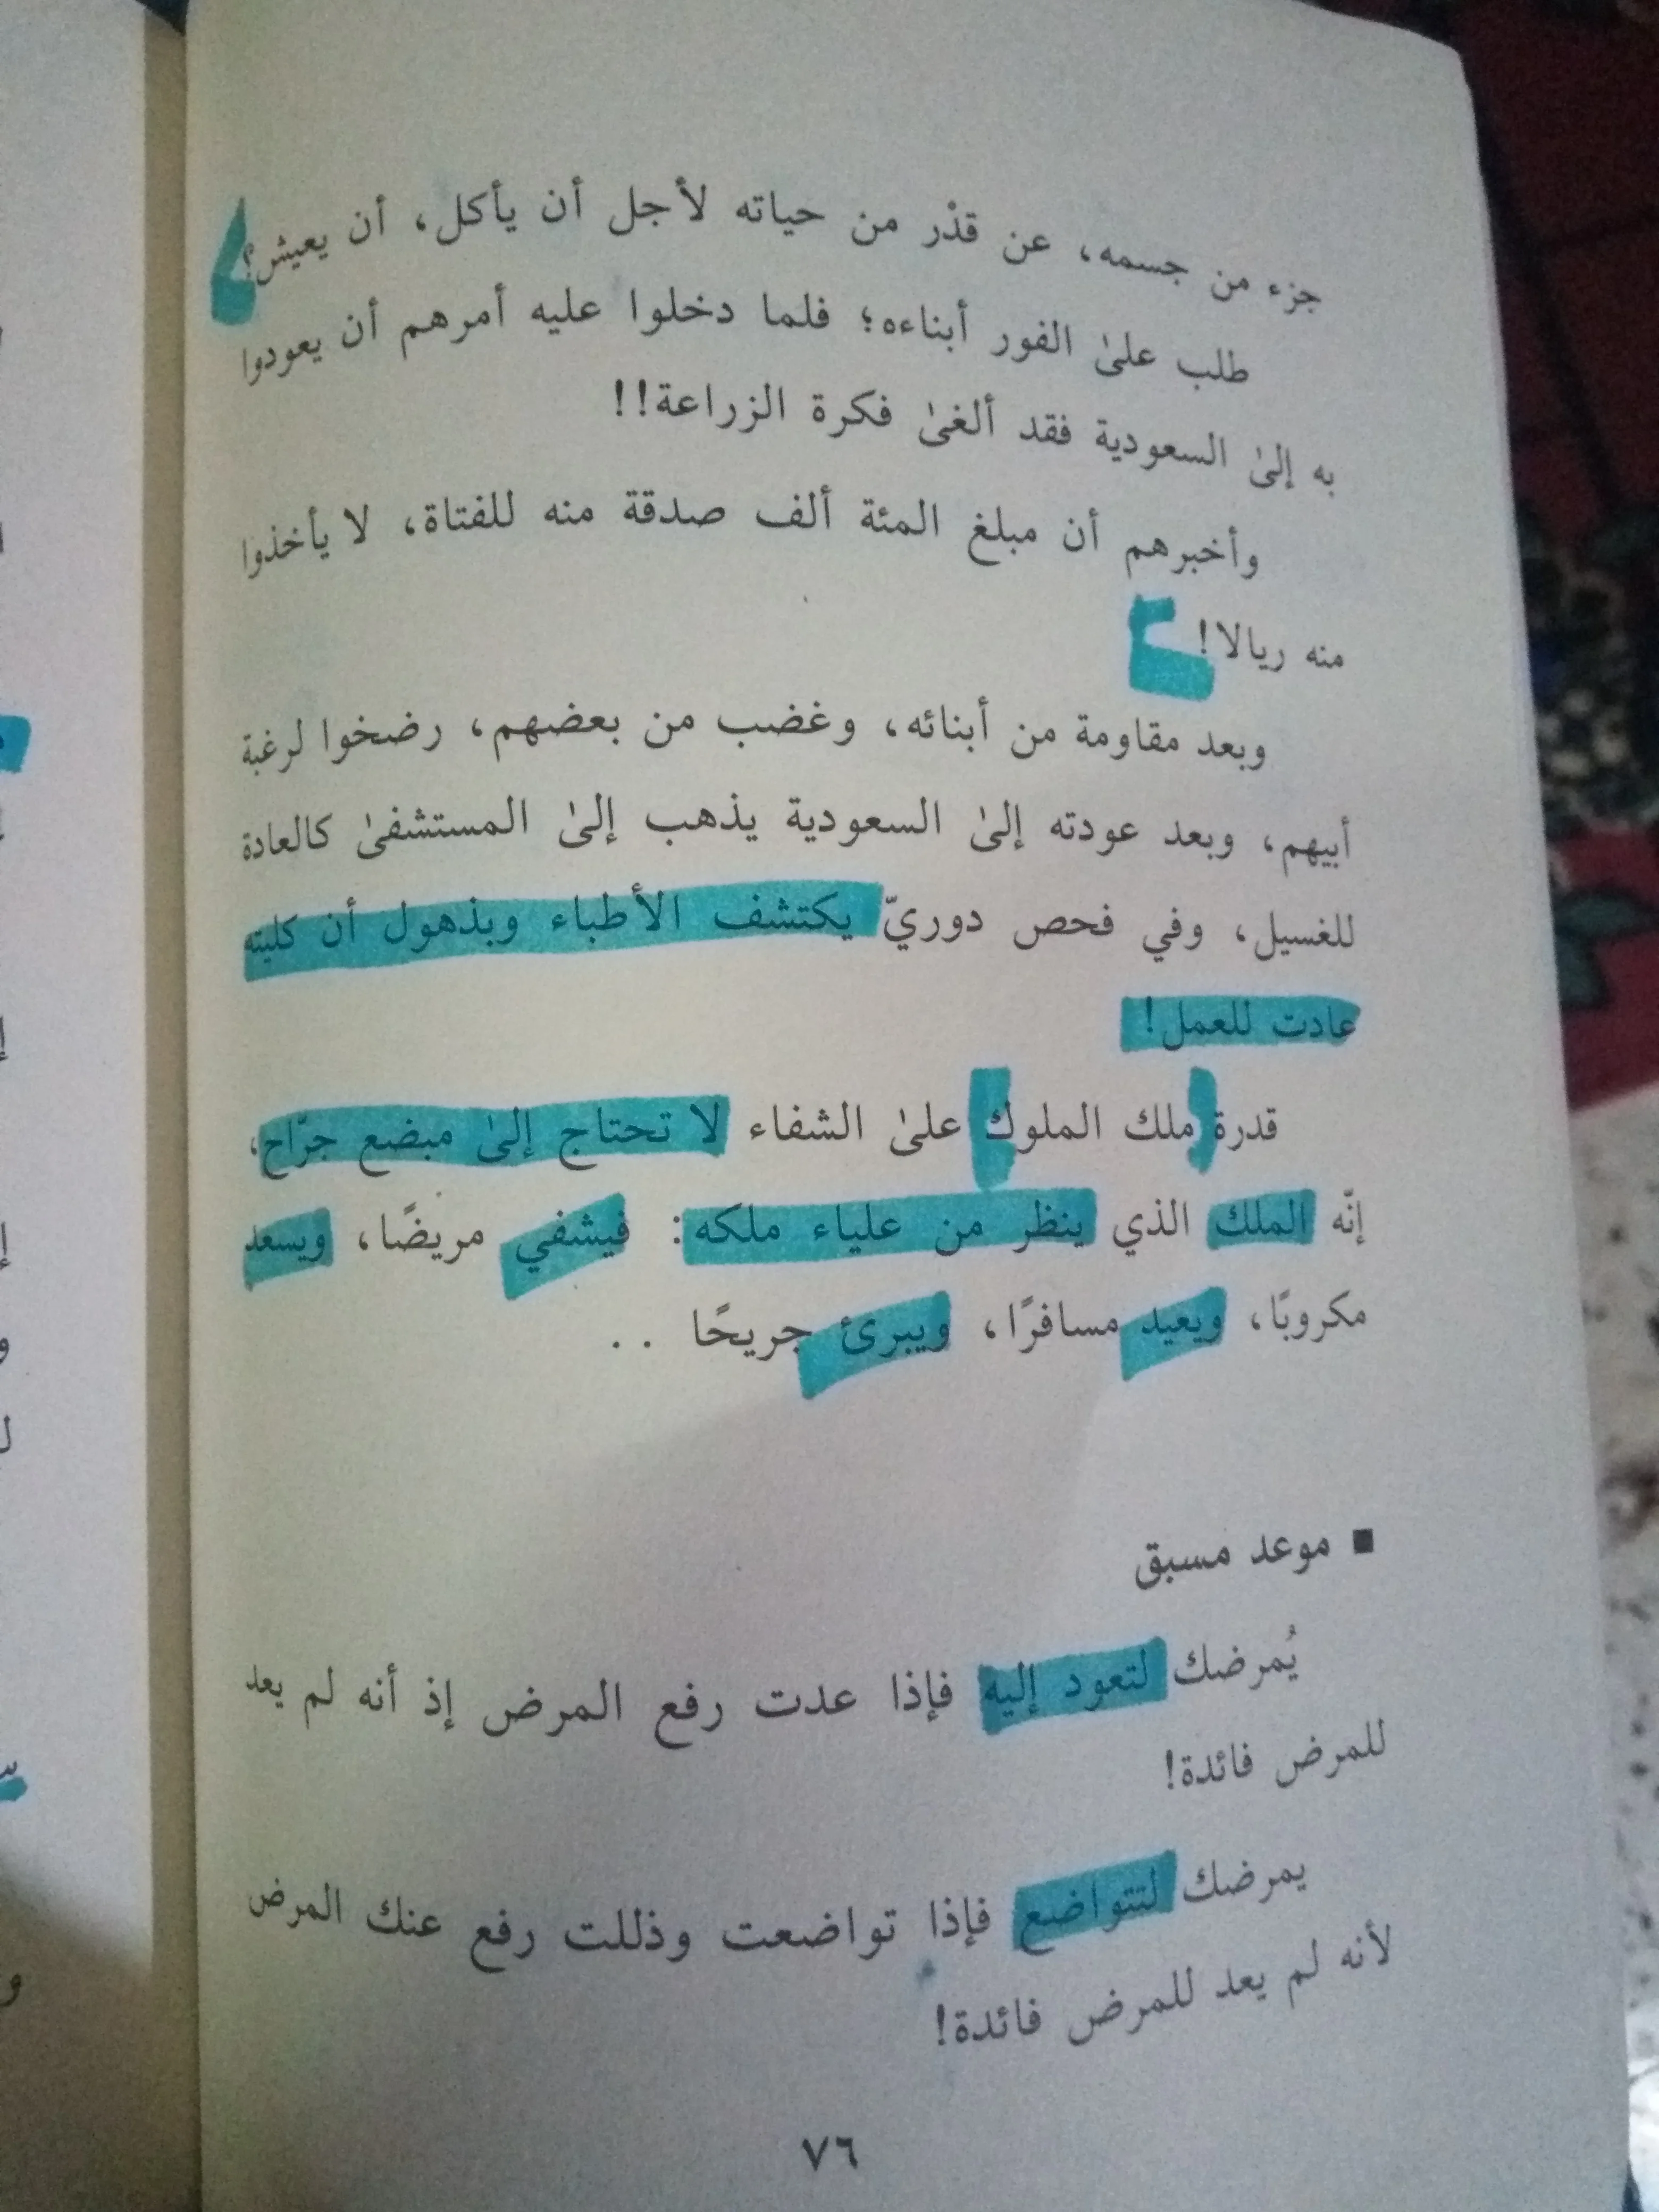 جزء من جسمه، عن قدْر من حياته لأجل أن يأكل، أن يعيش؟
طلب علىٰ الفور أبناءه؛ فلما دخلوا عليه أمرهم أن يعودوا
به إلىٰ السعودية فقد ألغىٰ فكرة الزراعة!!
وأخبرهم أن مبلغ المئة ألف صدقة منه للفتاة، لا يأخذوا
منه ريالا!
وبعد مقاومة من أبنائه، وغضب من بعضهم، رضخوا لرغبة
أبيهم، وبعد عودته إلىٰ السعودية يذهب إلىٰ المستشفىٰ كالعادة
للغسيل، وفي فحص دوريّ يكتشف الأطباء وبذهول أن كليته
عادت للعمل!
قدرة ملك الملوك علىٰ الشفاء لا تحتاج إلىٰ مبضع جرّاح،
إنّه الملك الذي ينظر من علياء ملكه: فيشفي مريضًا، ويسعد
مكروبًا، ويعيد مسافرًا، ويبرئ جريحًا ..
■ موعد مسبق
يُمرضك لتعود إليه فإذا عدت رفع المرض إذ أنه لم يعد
للمرض فائدة!
يمرضك لتتواضع فإذا تواضعت وذللت رفع عنك المرض
لأنه لم يعد للمرض فائدة!
٧٦